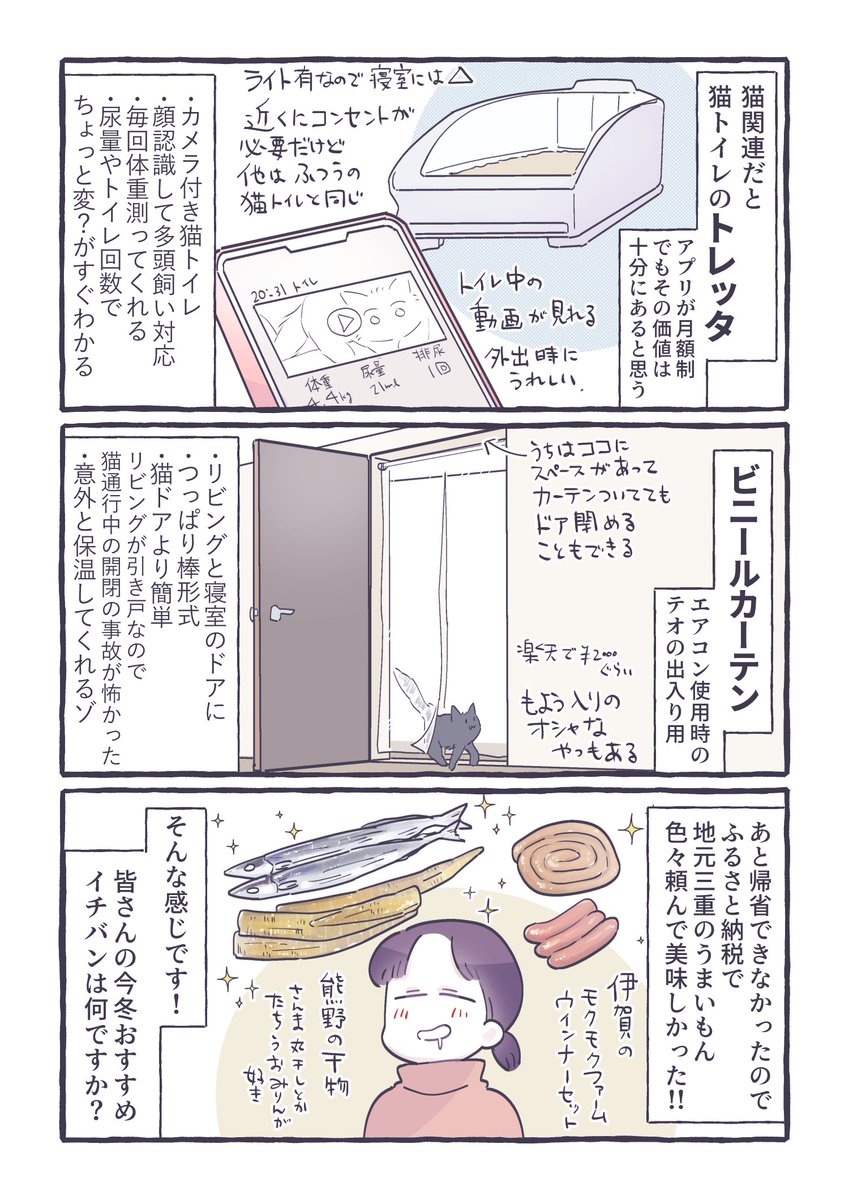 猫関連だと
猫トイレのトレッタ
アプリが月額制
でもその価値は
十分にあると思う
ライト有なので寝室には△
近くにコンセントが
必要だけど
他はふつうの
猫トイレと同じ
20:31 トイレ
体重
4.4kg
尿量
21ml
排尿
1回
トイレ中の
動画が見れる
外出時に
うれしい
・カメラ付き猫トイレ
・顔認識して多頭飼い対応
・毎回体重測ってくれる
・尿量やトイレ回数で
ちょっと変?がすぐわかる
ビニールカーテン
エアコン使用時の
テオの出入り用
うちはココに
スペースがあって
カーテンついてても
ドア閉める
こともできる
楽天で¥2000
ぐらい
もよう入りの
オシャな
やつもある
・リビングと寝室のドアに
・つっぱり棒形式
・猫ドアより簡単
リビングが引き戸なので
猫通行中の開閉の事故が怖かった
・意外と保温してくれるゾ
あと帰省できなかったので
ふるさと納税で
地元三重のうまいもん
色々頼んで美味しかった!!
伊賀の
モクモクファーム
ウインナーセット
熊野の干物
さんま丸干しとか
たちうおみりんが
好き
そんな感じです!
皆さんの今冬おすすめ
イチバンは何ですか?